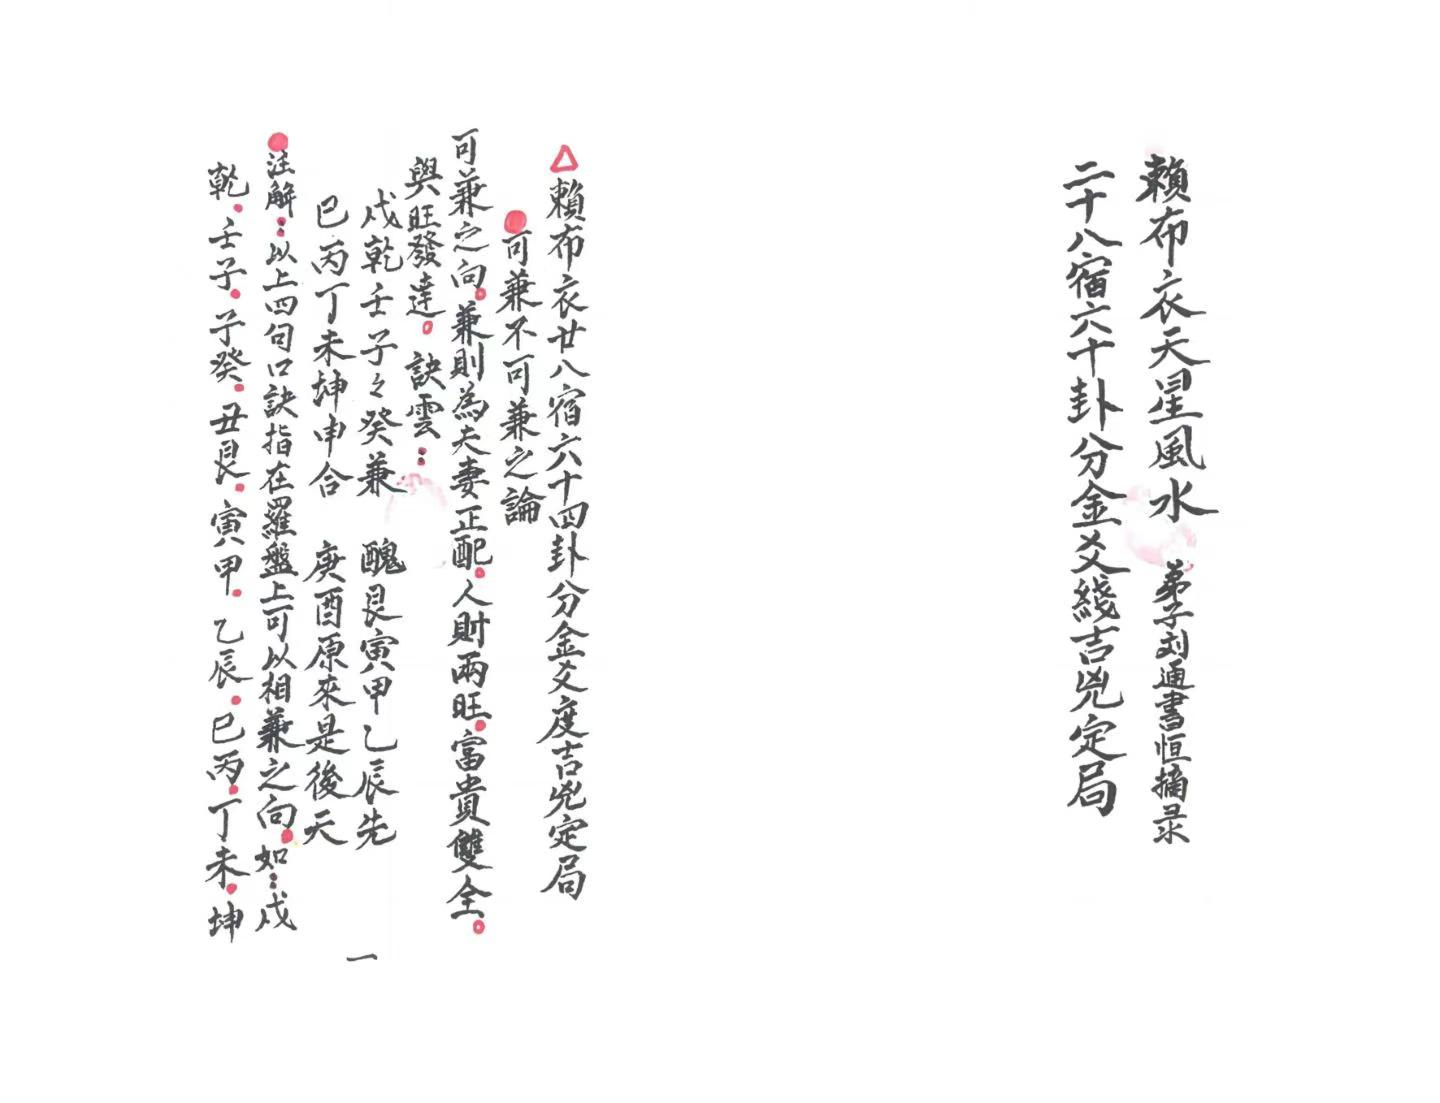 賴布衣天星風水 弟子刘通書恒摘录
二十八宿六十卦分金爻綫吉兇定局
△賴布衣廿八宿六十四卦分金爻度吉兇定局
可兼不可兼之論
可兼之向。兼則為夫妻正配。人財兩旺。富貴雙全。
與旺發達。訣雲：
戌乾壬子々癸兼 醜艮寅甲乙辰先
巳丙丁未坤申合 庚酉原來是後天
注解：以上四句口訣指在羅盤上可以相兼之向。如：戌
乾。壬子。子癸。丑艮。寅甲。乙辰。巳丙。丁未。坤
一